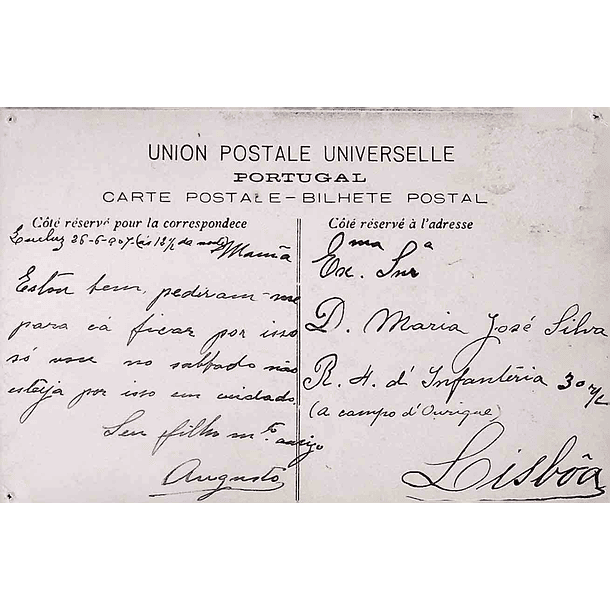 UNION POSTALE UNIVERSELLE
PORTUGAL
CARTE POSTALE – BILHETE POSTAL
Côté réservé pour la correspondece
26-6-907
Mamã
Estou bem, pediram-me
para cá ficar por isso
só vou no sabbado não
esteja por isso em cuidado
Seu filho m.to amigo
Augusto
Côté réservé à l'adresse
Exma Snra
D. Maria José Silva
R. 4. d'Infantéria 30 r/c
(a campo d'Ourique)
Lisbôa